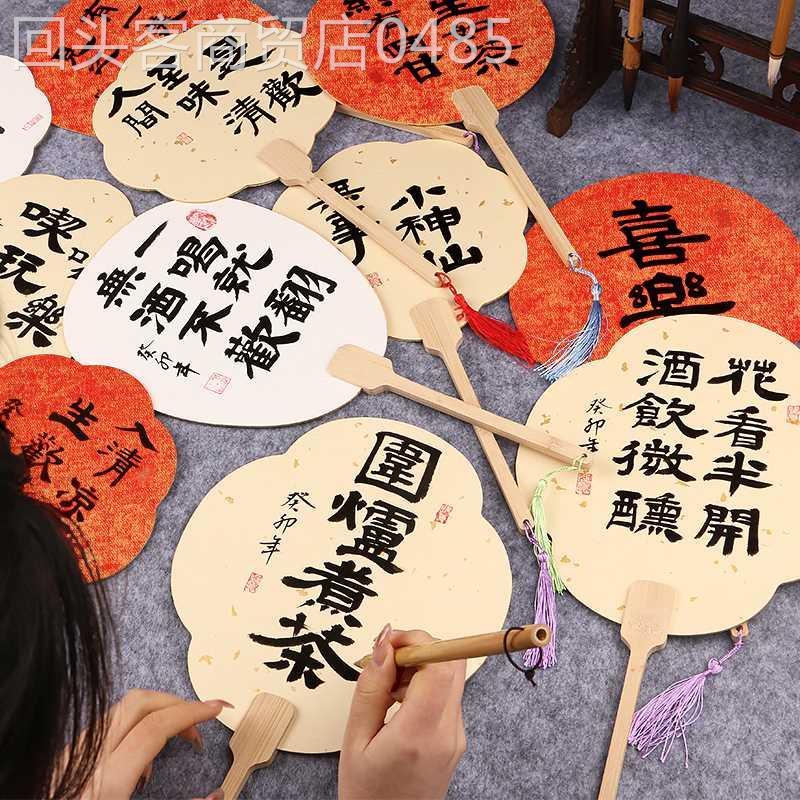 回头客商贸店0485
人間
至味
是清
歡
無事
小神仙
喜樂
喫
玩樂
一喝就翻
無酒不歡
癸卯年
人清涼
生歡
花看半開
酒飲微醺
癸卯年
圍爐煮茶
癸卯年